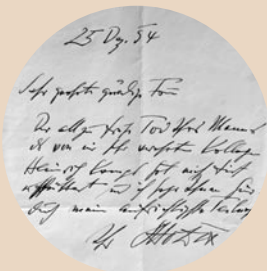 25 Dez. 54
Sehr geehrte gnädige Frau
Der allzu frühe Tod Ihres Mannes
des von mir sehr verehrten Kollegen
Heinrich hat mich tief
erschüttert und ich sage Ihnen hier
durch meine aufrichtigste Teilnahme
Ihr